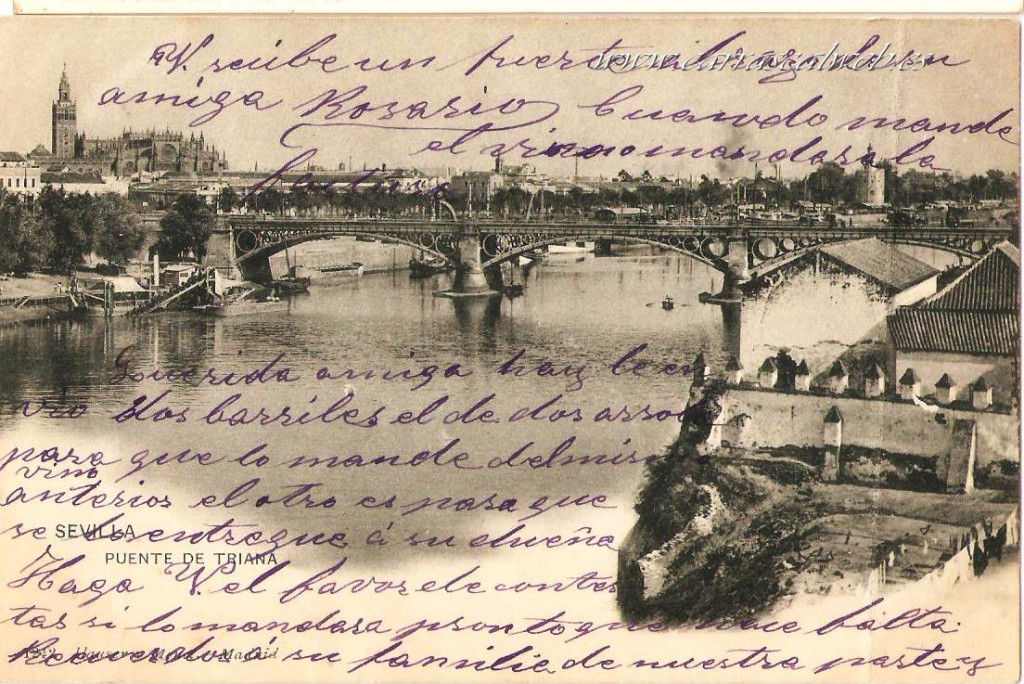 V. recibe un fuerte abrazo de su
www.carrascalweb.es
amiga Rosario Cuando mande
el vino mandara la
factura
Querida amiga hay lleva
dos barriles el de dos arro
para que lo mande del mismo
vino
anterior el otro es para que
se lo entregue á su dueña
SEVILLA
PUENTE DE TRIANA
Haga V. el favor de contes
tas si lo mandara pronto que hace falta.
Hauser y Menet.-Madrid
Recuerdos á su familia de nuestra parte y